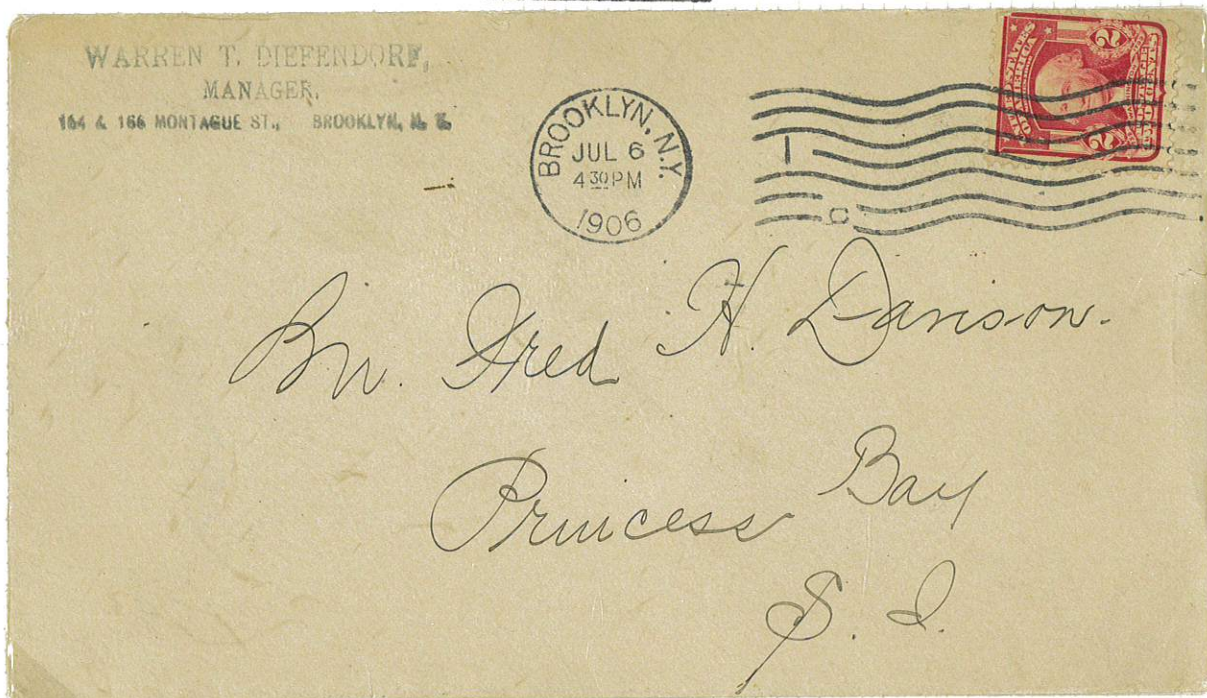 WARREN T. DIEFENDORF,
MANAGER.
164 & 166 MONTAGUE ST., BROOKLYN, N. Y.
BROOKLYN, N.Y.
JUL 6
4 30 PM
1906
1
C
UNITED STATES OF AMERICA
2 2
Fred H. Davison.
Princess Bay
S. I.